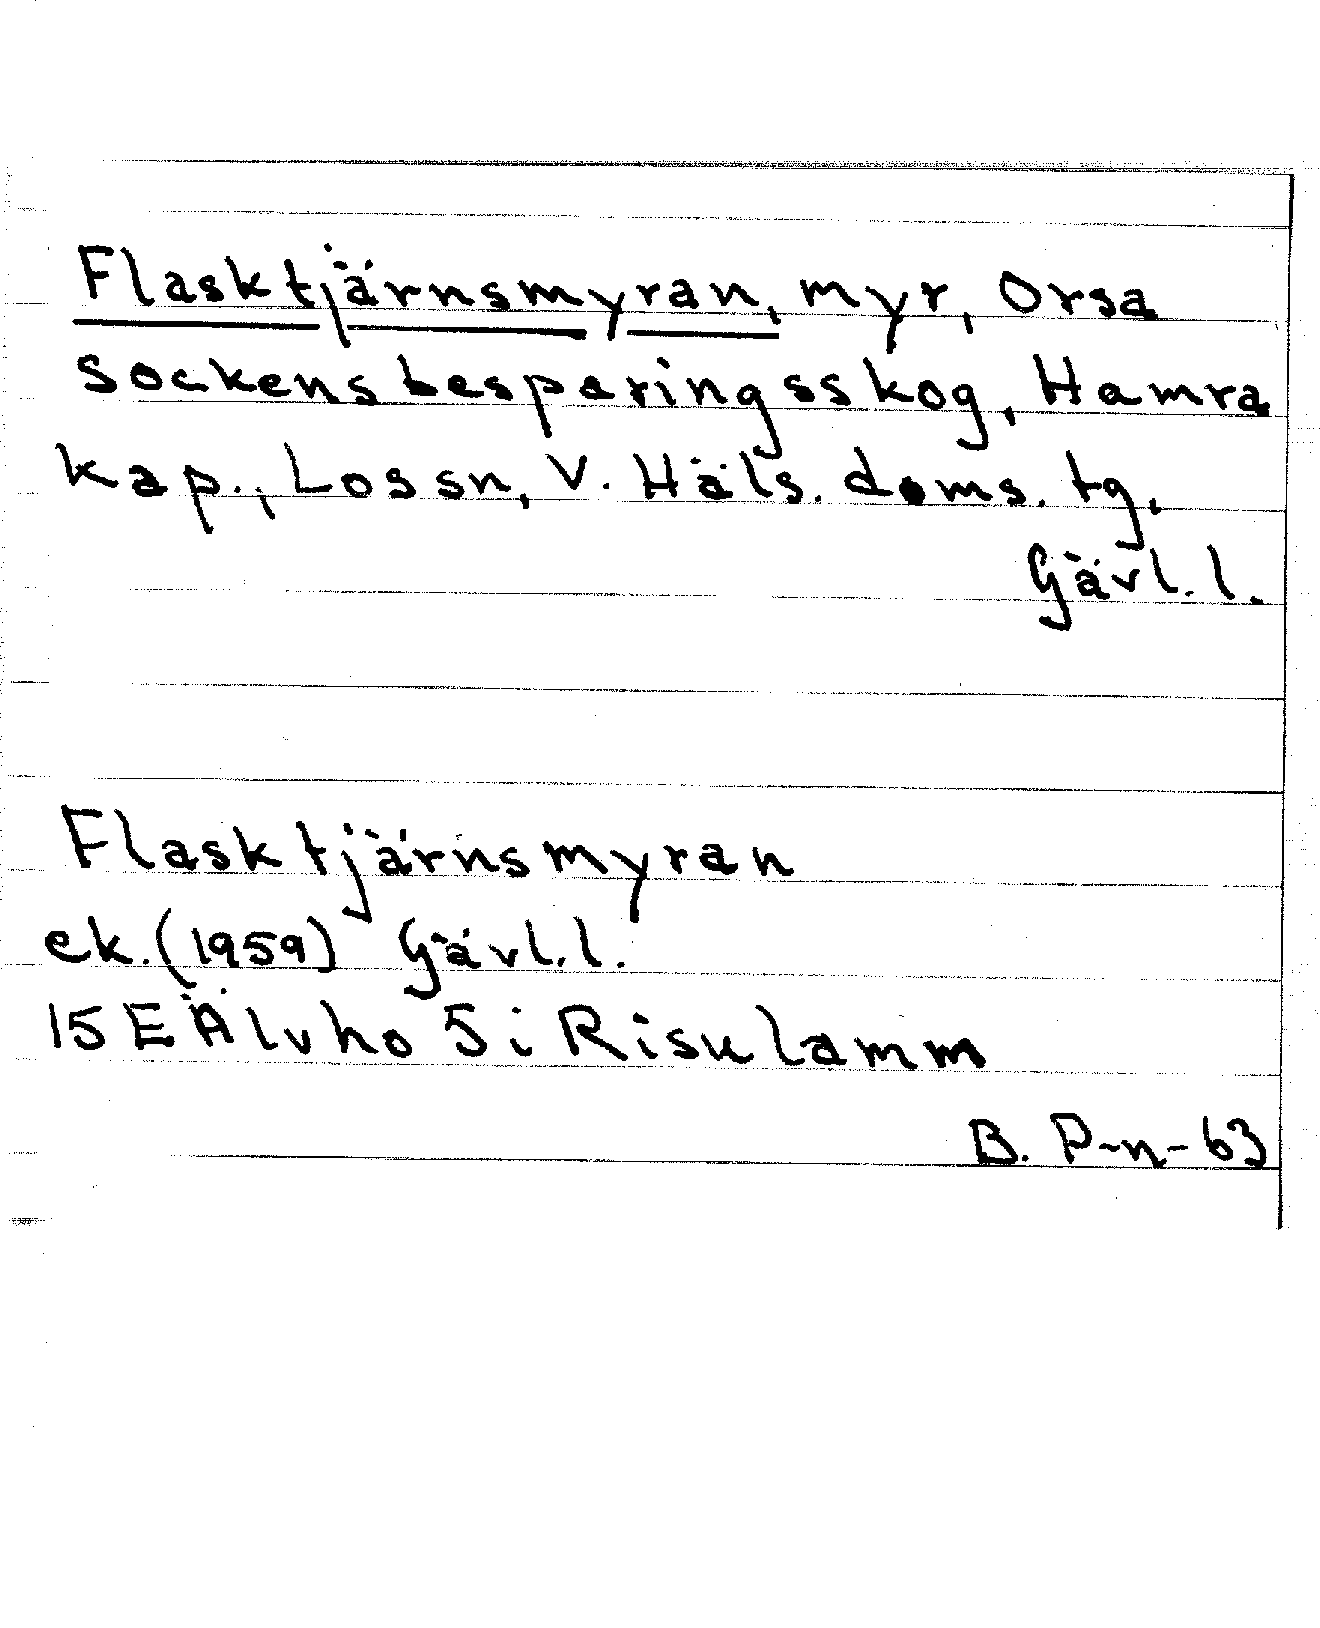 Flasktjärnsmyran, myr, Orsa
sockens besparingsskog, Hamra
kap., Los sn, V. Häls. doms. tg,
Gävl. l.
Flasktjärnsmyran
ek. (1959) Gävl. l.
15 E Älvho 5 i Risulamm
B. P-n-63